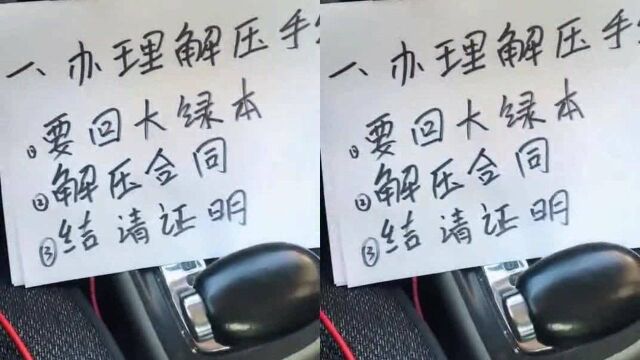 一、办理解压手
①要回大绿本
②解压合同
③结请证明
一、办理解压手
①要回大绿本
②解压合同
③结请证明